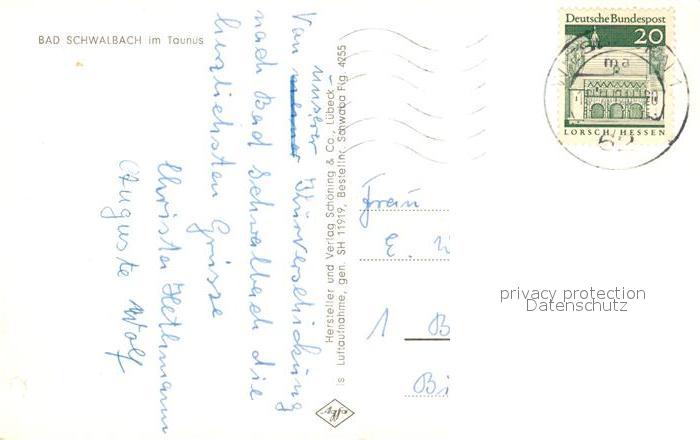 BAD SCHWALBACH im Taunus
Von meiner
unserer Kurverschickung
nach Bad Schwalbach die
herzlichsten Grüsse
Christa Hethmann
Auguste Wolf
Hersteller und Verlag Schöning & Co., Lübeck
Is Luftaufnahme, gen. SH 11919, Bestellnr. Schwaba Flg. 4255
Deutsche Bundespost
20
LORSCH/HESSEN
Frau
E.
1 B
Bi
privacy protection
Datenschutz